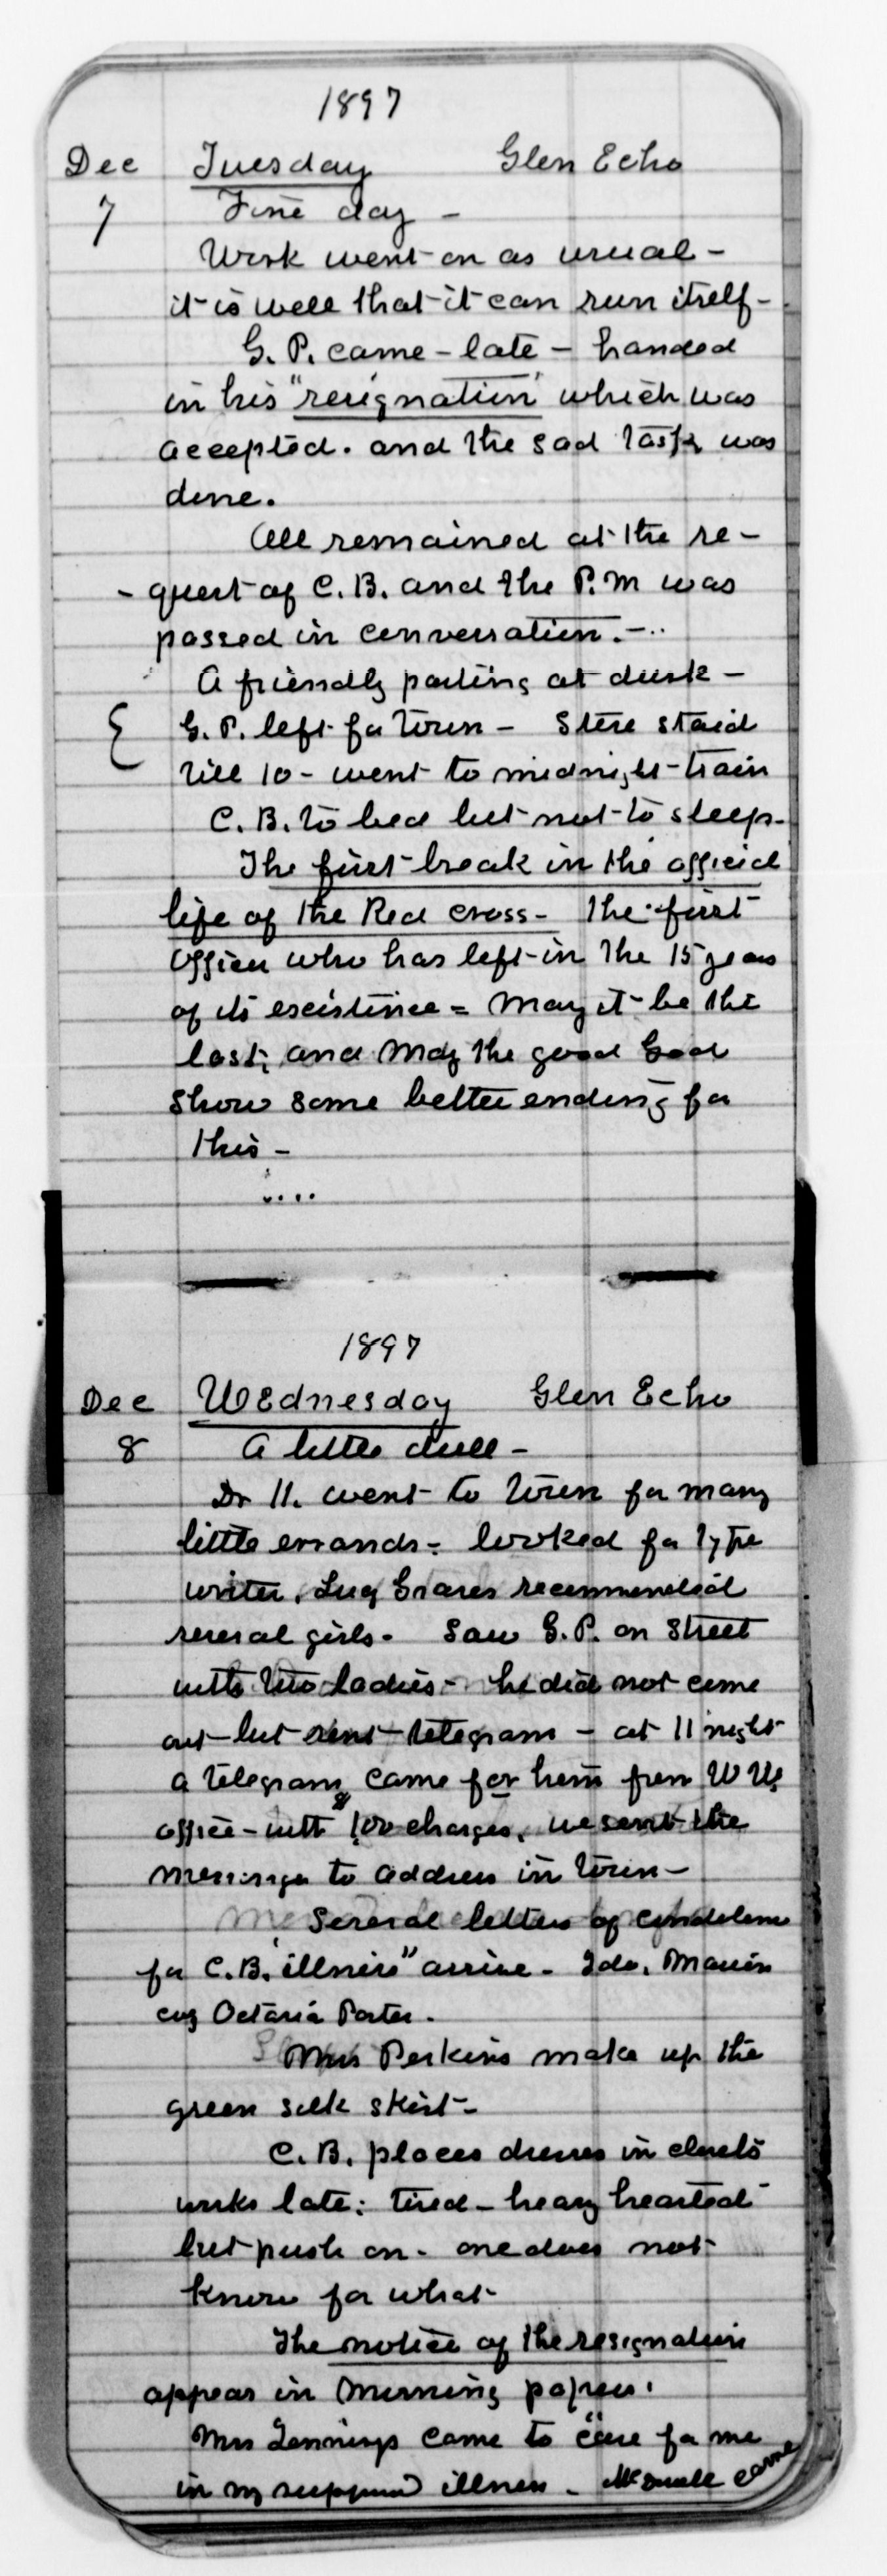 1897
Dec Tuesday Glen Echo
7 Fine day -
Work went on as usual -
it is well that it can run itself -
G. P. came - late - handed
in his "resignation" which was
accepted. and the sad task was
done.
All remained at the re-
- quest of C. B. and the P.M was
passed in conversation. - ..
A friendly parting at dusk -
G. P. left for town - Stere staid
till 10 - went to midnight train
C. B. to bed but not to sleep -
The first break in the official
life of the Red cross - the first
officer who has left in the 15 years
of its existince = May it be the
last, and May the good God
show some better ending for
this -
....
1897
Dec Wednesday Glen Echo
8 A little dull -
Dr H. went to town for many
little errands - looked for type
writer, Lucy Graves recommended
several girls - Saw G. P. on Street
with two ladies - he did not come
out but sent telegram - at 11 night
a telegram came for him from W U.
office - with 1,00 charges, we sent the
messenger to address in town -
Several letters of condolence
for C. B. "illness" arrive - Ida,
Octavia Porter.
Mrs Perkins make up the
green silk skirt -
C. B. places dresses in closets
works late: tired - heavy hearted
but push on - one does not
know for what
The notice of the resignation
appear in morning papers.
Mrs Jennings came to "care for me
in my supposed illness - came